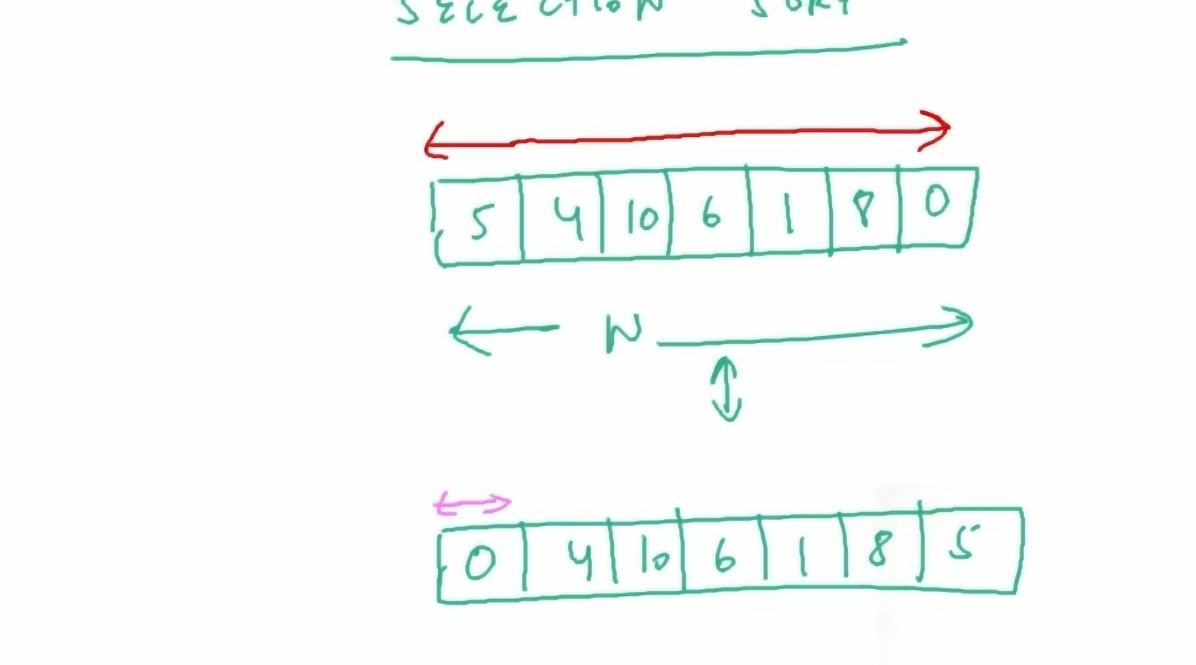 SELECTION SORT
5 4 10 6 1 8 0
N
0 4 10 6 1 8 5